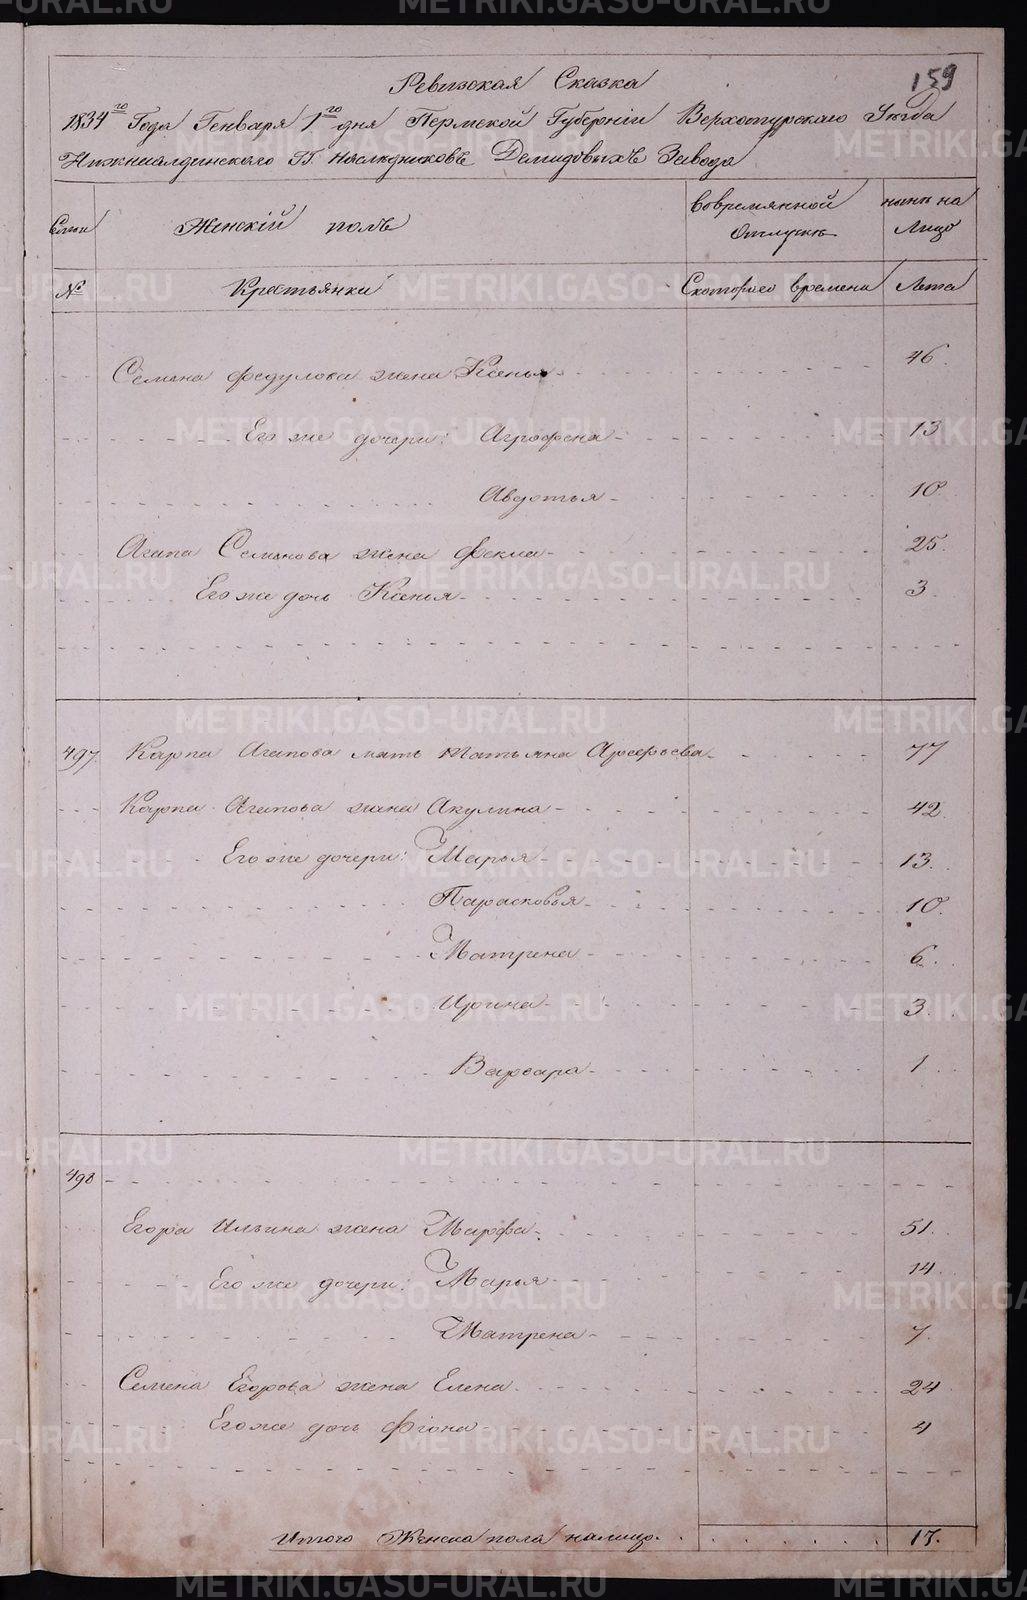 159
Ревизская Сказка
1834го Года Генваря 1го дня Пермской Губерніи Верхотурскаго Уезда
Нижнисалдинскаго ГГ. Наследниковъ Демидовыхъ Завода
Семьи Женскій полъ Вовремянной Отлучке ныне на Лицо
№ Крестьянки Скоторого времени Лета
Семена Федулова жена Ксенья 46.
Его же дочери: Агрофена 13
Авдотья 10
Агапа Семенова жена Фекла 25.
Его же дочь Ксенья 3.
497. Карпа Агапова мать Татьяна Арефьева 77
Карпа Агапова жена Акулина 42
Его же дочери: Марья 13.
Парасковья 10.
Матрена 6.
Ирина 3.
Варвара 1
498
Егора Ильина жена Марфа 51.
Его же дочери: Марья 14.
Матрена 7.
Семена Егорова жена Елена 24
Его же дочь Фіона 4
Итого Женска пола налицо. 17.
METRIKI.GASO-URAL.RU